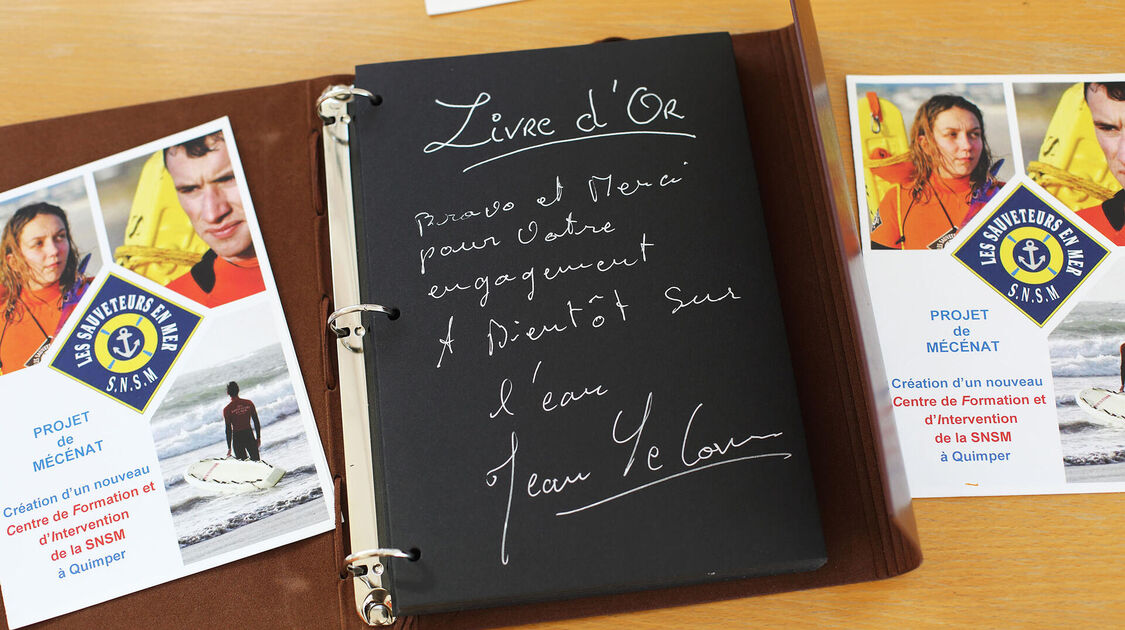 LES SAUVETEURS EN MER
S.N.S.M
PROJET
de
MÉCÉNAT
Création d'un nouveau
Centre de Formation et
d'Intervention
de la SNSM
à Quimper
Livre d'Or
Bravo et Merci
pour Votre
engagement
A Bientôt Sur
l'eau
Jean Le Cam
LES SAUVETEURS EN MER
S.N.S.M
PROJET
de
MÉCÉNAT
Création d'un nouveau
Centre de Formation et
d'Intervention
de la SNSM
à Quimper